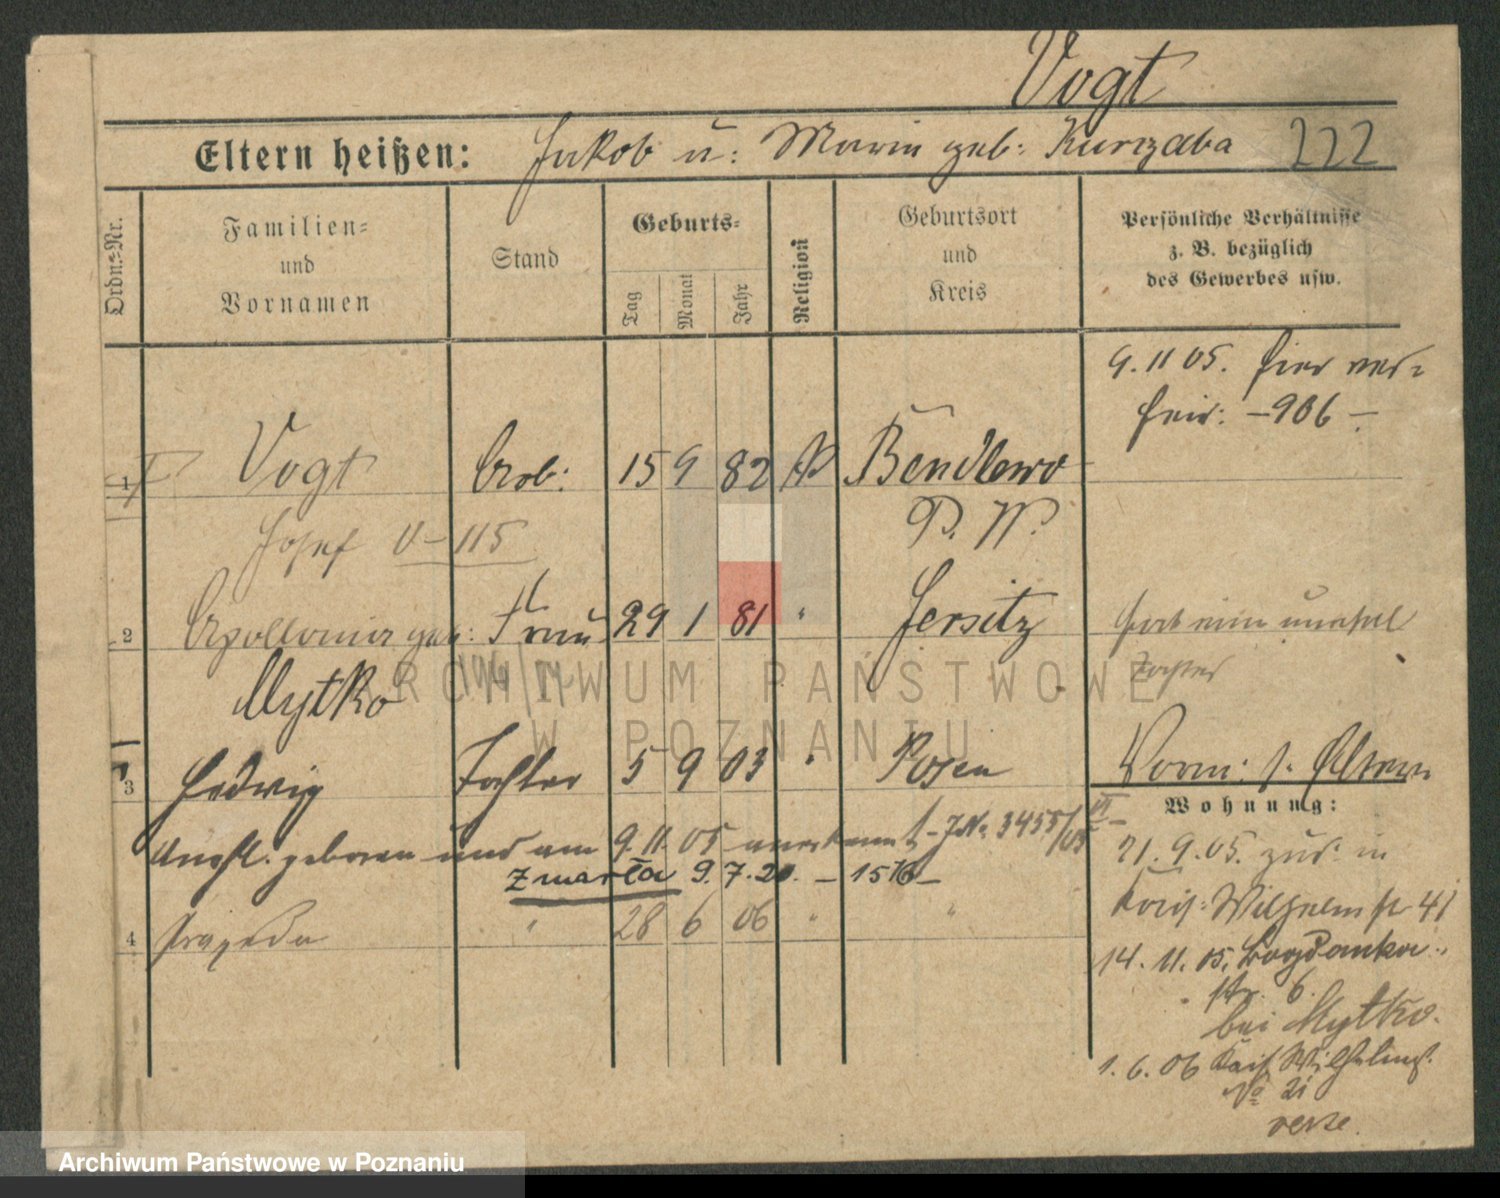 Vogt
Eltern heißen: Jakob u: Maria geb: Kurzaba 222
Ordn.=Nr.
Familien= und Vornamen
Stand
Geburts=
Tag Monat Jahr
Religion
Geburtsort und Kreis
Persönliche Verhältnisse
z. B. bezüglich
des Gewerbes usw.
9. 11 05. hier ver=
heir: -906-
1 Vogt Arb: 15 9 82 Bendlewo
Josef V-115 P. W.
2 Apollonia geb: Frau 29 1 81 " Jersitz hat eine unehel
Mytko Tochter
3 Hedwig Tochter 5 9 03 " Posen Vorm: s. Eltern
Wohnung:
Unehl. geboren und am 9. 11. 05 anerkannt - J.No. 3455/05
21. 9. 05. zur: in
zmarła 9. 7. 20.
Wilhelm str 41
4 Praxeda " 28 6 06 " "
14. 11. 05. Bogdanka
str. 6.
bei Mytko.
1. 6. 06 Kais. Wilhelmst.
No 21
ARCHIWUM PAŃSTWOWE
W POZNANIU
Archiwum Państwowe w Poznaniu